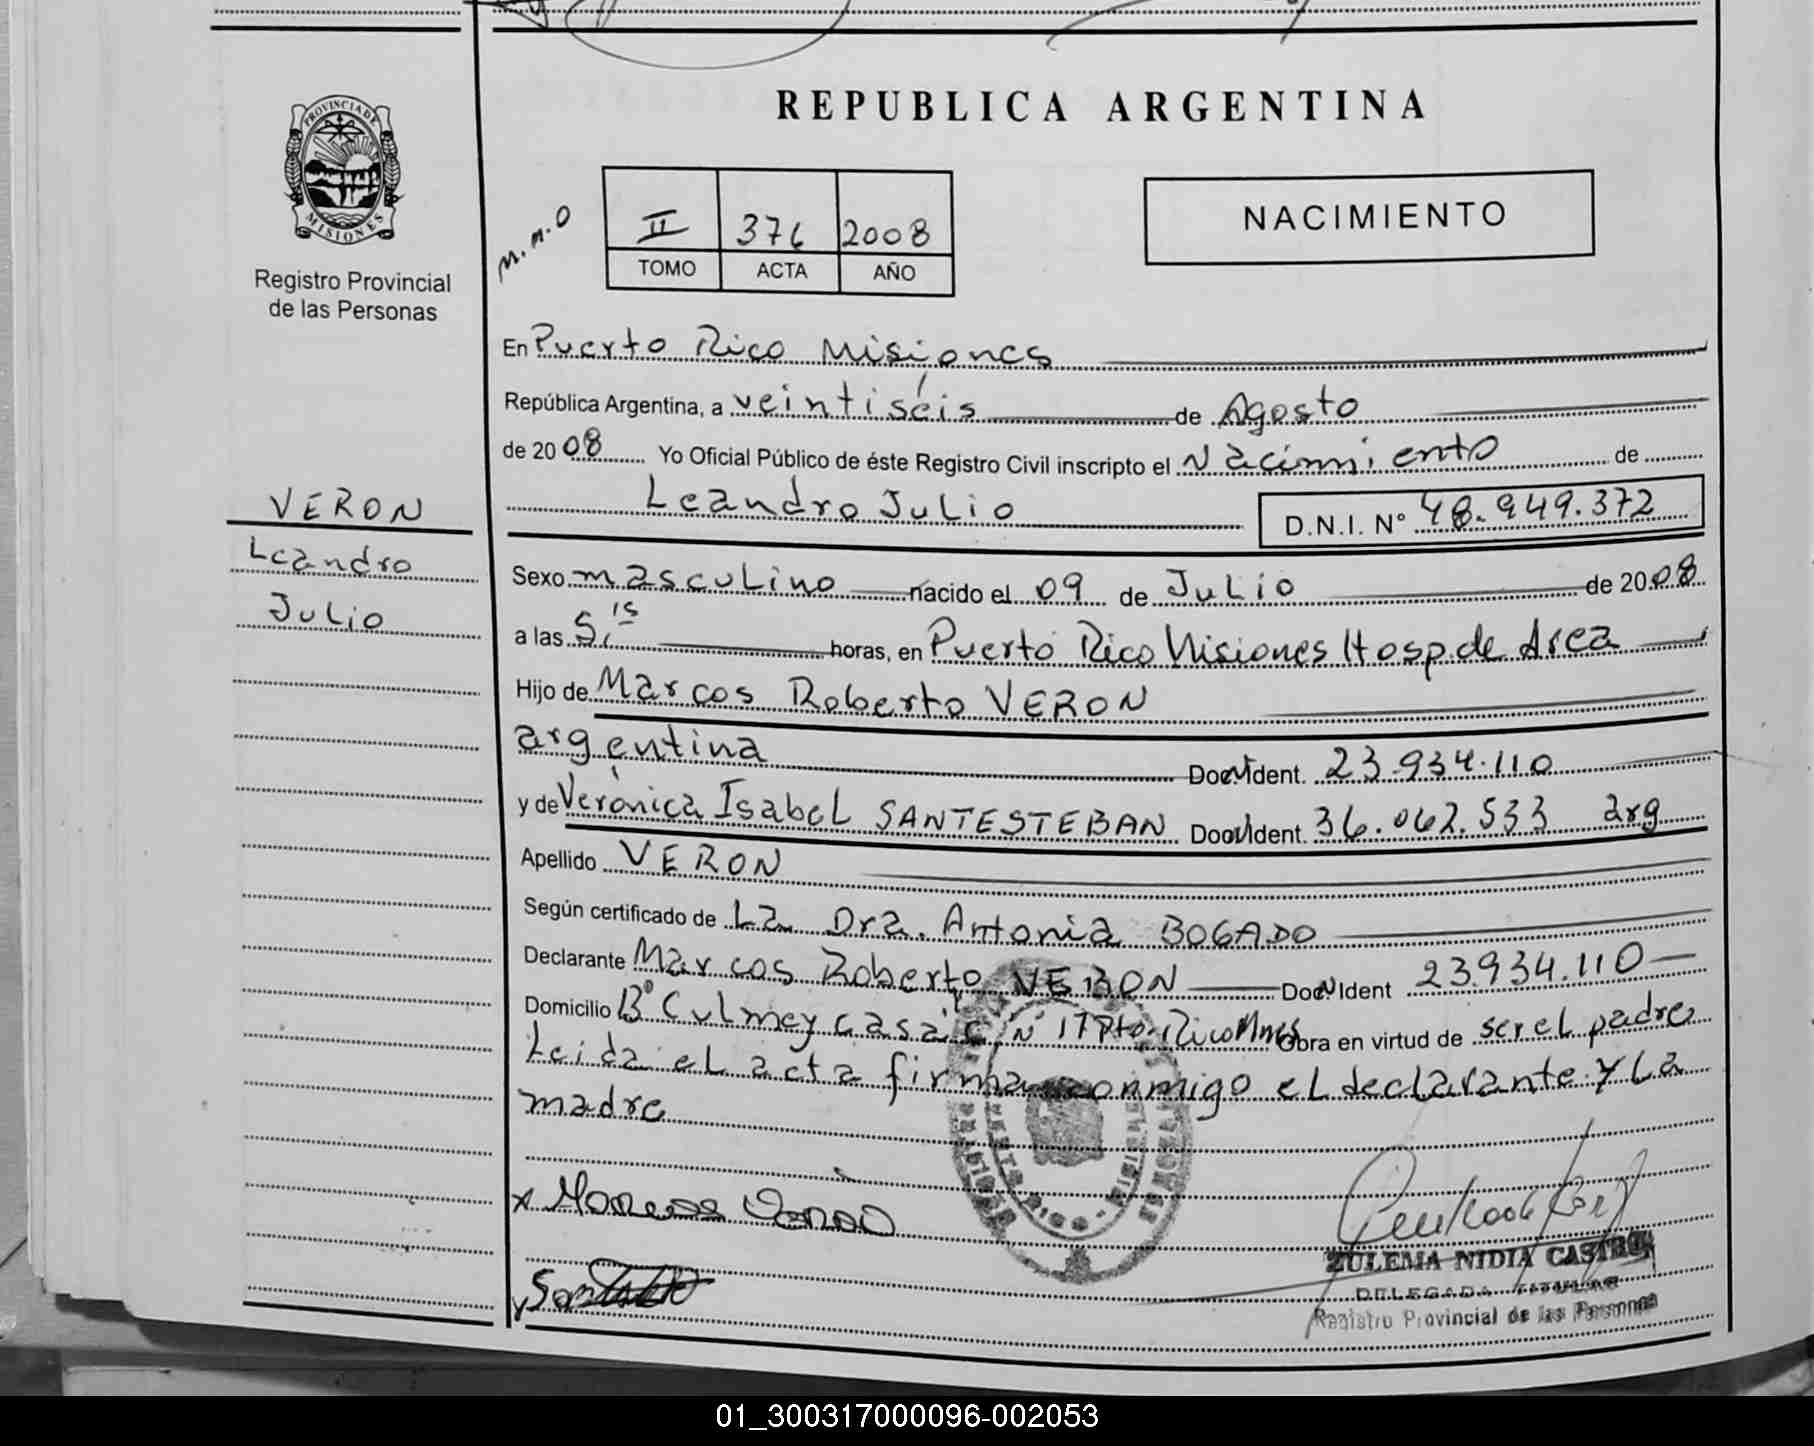 REPUBLICA ARGENTINA
PROVINCIA DE
MISIONES
Registro Provincial
de las Personas
M.M.O
II 376 2008
TOMO ACTA AÑO
NACIMIENTO
En Puerto Rico Misiones
República Argentina, a veintiséis de Agosto
de 20 08 Yo Oficial Público de éste Registro Civil inscripto el Nacimiento de
Leandro Julio D.N.I. N° 48.949.372
VERON
Leandro
Julio
Sexo masculino nacido el 09 de Julio de 20 08
a las 5,15 horas, en Puerto Rico Misiones Hosp. de Area
Hijo de Marcos Roberto VERON
argentina Doc. Ident. 23.934.110
y de Verónica Isabel SANTESTEBAN Doc. Ident. 36.062.533 arg
Apellido VERON
Según certificado de La Dra. Antonia BOGADO
Declarante Marcos Roberto VERON Doc. Ident 23.934.110
Domicilio B° Culmey casa N° 17 Pto. Rico Mnes Obra en virtud de ser el padre
Leida el acta firma conmigo el declarante y La
madre
ZULEMA NIDIA CASTRO
DELEGADA TITULAR
Registro Provincial de las Personas
01_300317000096-002053